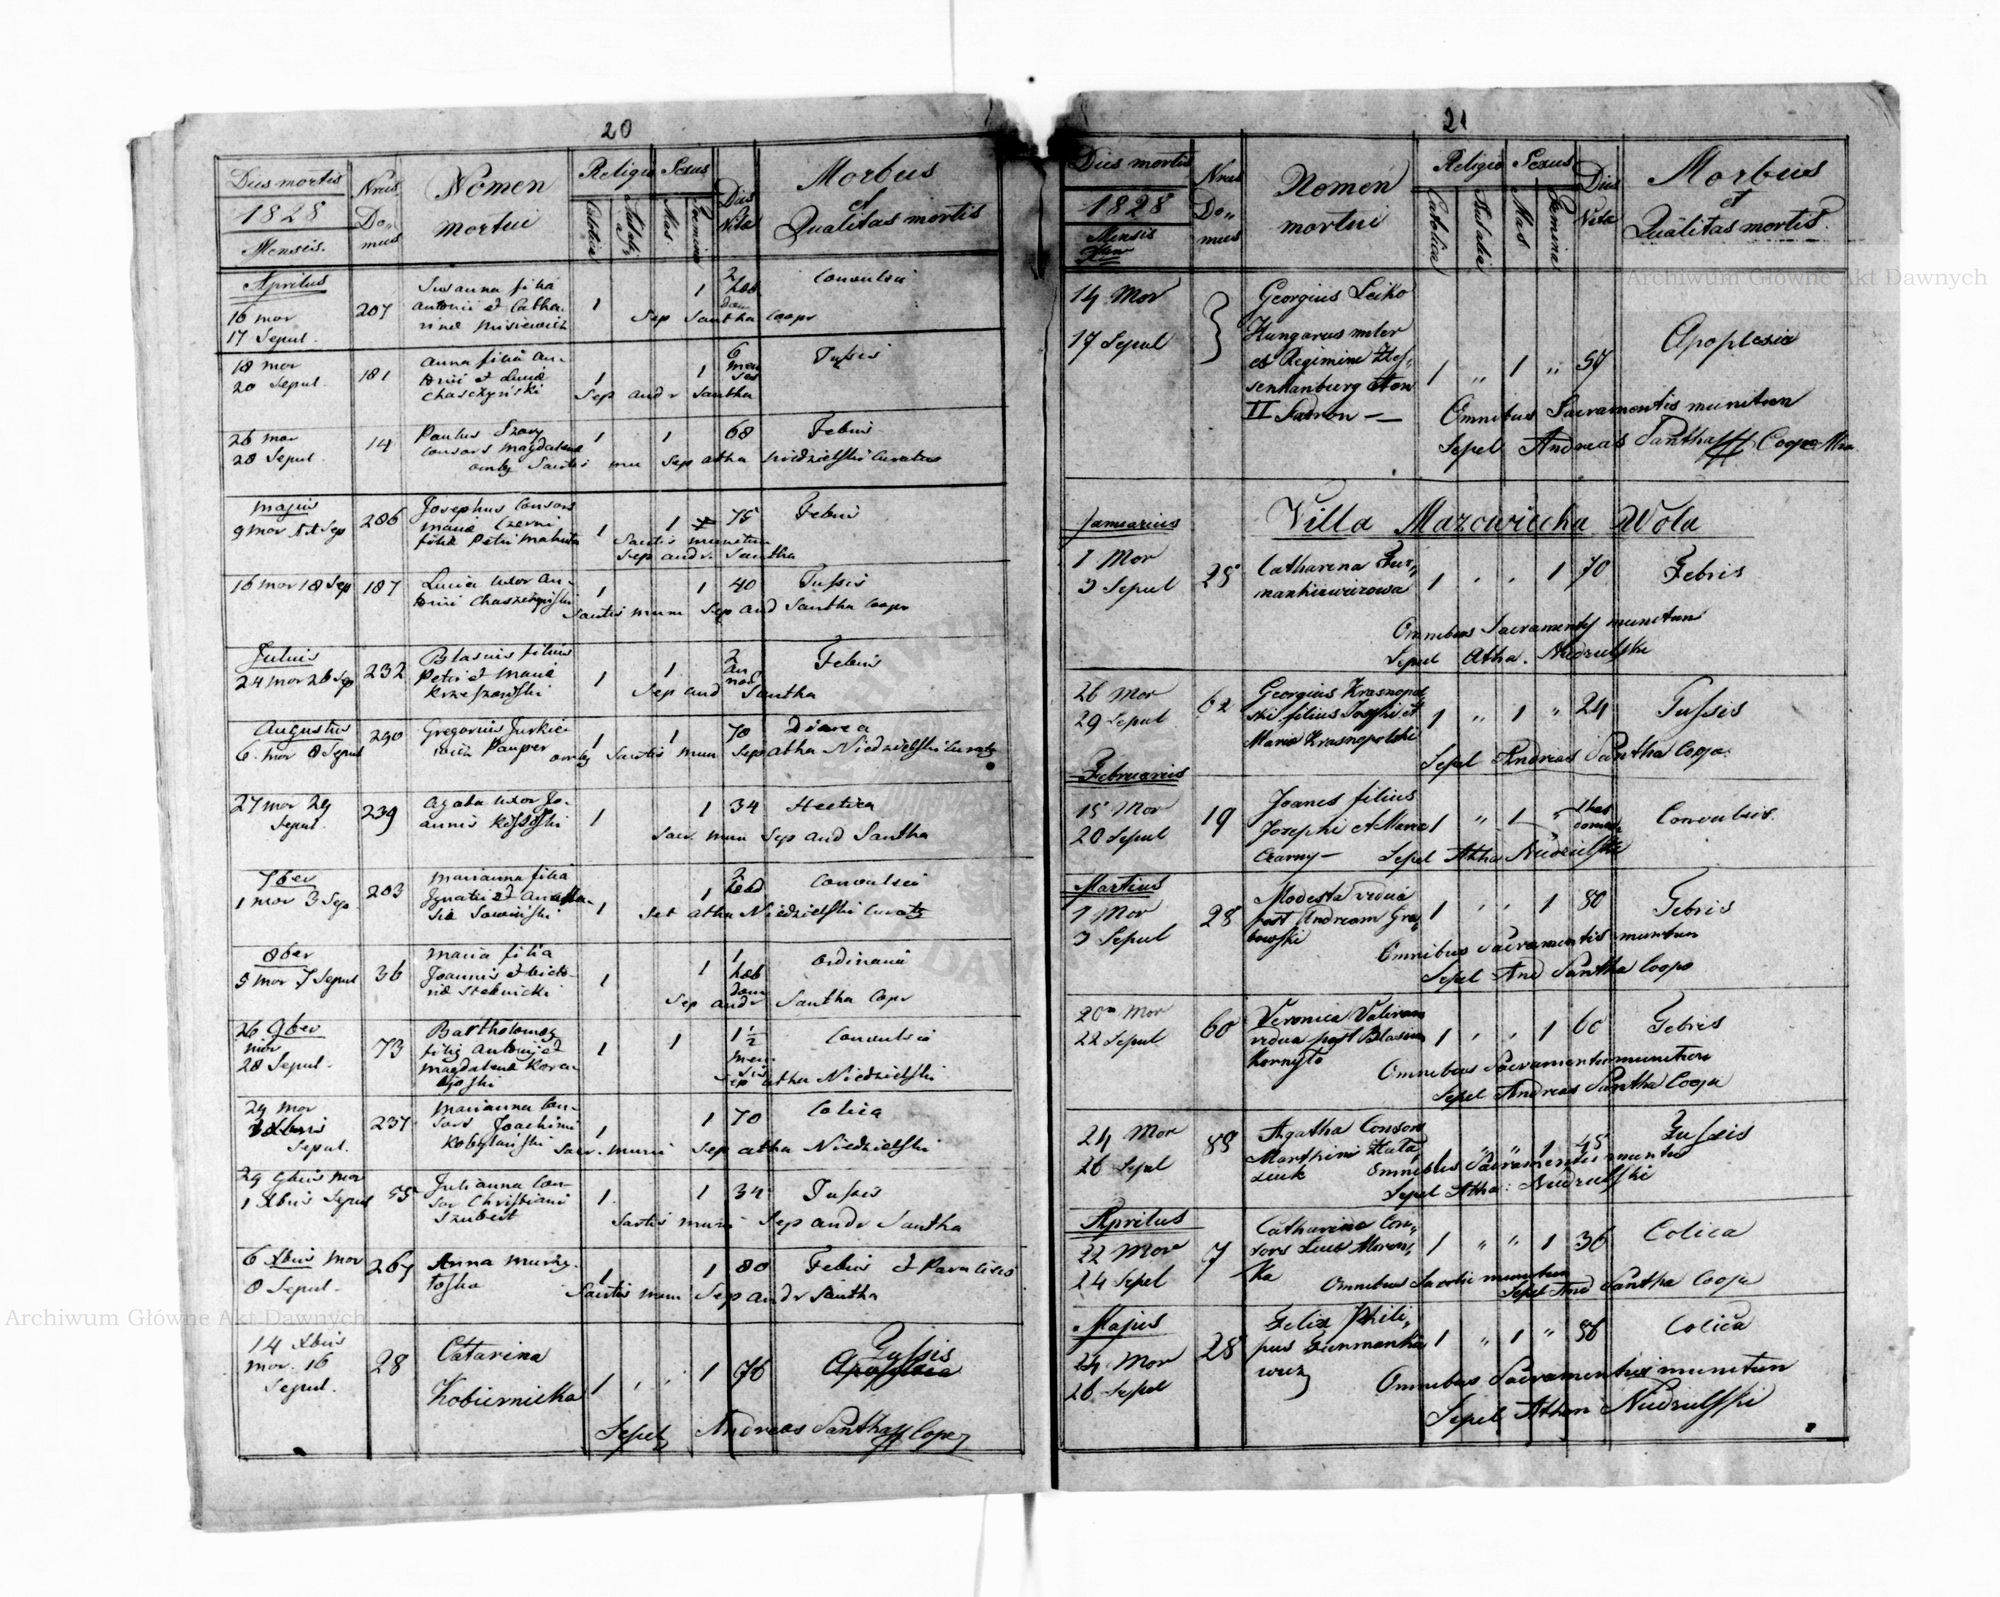 20
Dies mortis
1828
Mensis.
Nrus
Do„
mus
Nomen
mortui
Religio
Catolica
Sexus
Mas
Femina
Dies
Vita
Morbus
et
Qualitas mortis
Aprilus
16 mor
17 Sepul.
207
Susanna filia
Antonii et Catha„
rinæ Misiewicz
1
1
2
heb
dom
Convulsii
Sep Santha Coopr
18 mor
20 Sepul.
181
Anna filia An„
1
1
6
men
ses
Tussis
Sep andr Santha
26 mor
28 Sepul.
14
Paulus Szary
Consors Magdalenæ
1
1
68
Febris
omb Sactis mu Sep atha Niedzielski Curatus
Majus
9 mor 11 Sep
286
Josephus Consors
Mariæ Czerni
filiæ Petri
1
1
75
Febris
Sactis munitus
Sep andr. Santha
16 mor 18 Sep
187
Lucia uxor An„
1
1
40
Tussis
Sactis mum Sep and Santha Coopr
Julius
24 mor 26 Sep
232
Blasius filius
Petri et Mariæ
1
1
2
an
nos
Febris
Sep and Santha
Augustus
6. mor 8 Sepul
290
Gregorius Jurkie„
wicz Pauper
1
1
70
Diarea
omb Sactis mun Sep atha Niedzielski Curatg
27 mor 29
Sepul.
239
Agata uxor Jo„
annis
1
1
34
Hectica
Sacr. mun Sep and Santha
7ber
1 mor 3 Sep
203
Marianna filia
Ignatii et Anasta„
siæ Sawinski
1
1
2
hebd
Convulsii
Set atha Niedzielski Curatg
8ber
5 mor 7 Sepul
36
Maria filia
Joannis et Victo„
riæ Stebnicki
1
1
1
heb
dom
Ordinaria
Sep andr Santha Copr
26 9ber
mor
28 Sepul.
73
Bartholomeg
filig Antonij et
Magdalenæ
1
1
1 1/2
men
sis
Convulsio
Sep atha Niedzielski
29 mor
Sepul.
237
Marianna Con„
sors Joachimi
Kobylanski
1
1
70
Colica
Sacr. muni Sep atha Niedzielski
29 9bris mor
1 Xbris Sepul
55
Julianna Con„
sor Christiani
Szubert
1
1
34
Tussis
Sactis muni Sep andr Santha
6 Xbris mor
8 Sepul.
267
Anna
1
1
80
Febris et Paralisis
Sactis mum Sep andr Santha
14 Xbris
mor. 16
Sepul.
28
Catarina
Kobiernicka
1
1
76
Tussis
Apoplexia
Sepel Andreas Santha Coper
21
Dies mortis
1828
Mensis
Nrus
Do„
mus
Nomen
mortui
Religio
Catolica
Sexus
Mas
Femina
Dies
Vita
Morbus
et
Qualitas mortis.
14 Mor
17 Sepul
Georgius Leiko
Hungarus
ex Regimine Hes„
senhanburg
II
1 „ 1 „ 57
Apoplexia
Omnibus Sacramentis munitum
Sepel Andreas Santha Coope
Januarius
Villa Mazowiecka Wola
1 Mor
3 Sepul
28
Catharina Fur„
mankiewiczowa
1 „ „ 1 70
Febris
Omnibus Sacramentis munitum
Sepel Atha. Niedzielski
26 Mor
29 Sepul
62
Georgius Krasnopol„
ski filius Josephi et
Maria Krasnopolski
1 „ 1 „ 24
Tussis
Sepel Andreas Santha Coop.
Februarius
15 Mor
20 Sepul
19
Joanes filius
Josephi et Maria
Czarny
1 „ 1 „
Convulsis.
Sepel Atha Niedzielski
Martius
1 Mor
3 Sepul
28
Modesta vidua
post Andream Gra„
bowski
1 „ „ 1 80
Febris
Omnibus Sacramentis munitum
Sepel And Santha Coop
20 Mor
22 Sepul
60
Veronica
vidua post Blasium
1 „ „ 1 60
Febris
Omnibus Sacramentis munitum
Sepel Andreas Santha Coop
24 Mor
26 Sepul
Agatha Consors
Marthini
1 „ „ 1 45
Tussis
Omnibus Sacramentis
Sepel Atha: Niedzielski
Aprilus
22 Mor
24 Sepel
7
Catharina Con„
sors Lucæ
1 „ „ 1 36
Colica
Omnibus Sactis munitum
Sepel And Santha Coop
Majus
24 Mor
26 Sepul
28
Felix Phili„
pus Furmankie
wicz
1 „ 1 „ 56
Colica
Omnibus Sacramentis munitum
Sepel Athan Niedzielski
Archiwum Główne Akt Dawnych
Archiwum Główne Akt Dawnych